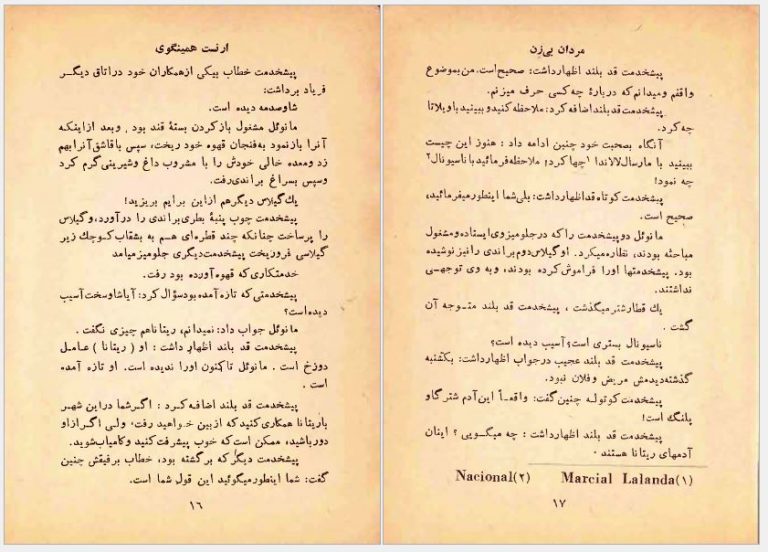 ارنست همینگوی
پیشخدمت خطاب بیکی ازهمکاران خود دراتاق دیگر
فریاد برداشت:
شاوصدمه دیده است.
مانوئل مشغول بازکردن بستهٔ قند بود ، وبعد ازاینکه
آنرا بازنمود به‌فنجان قهوه خود ریخت، سپس باقاشق‌آنرابهم
زد ومعده خالی خودش را با مشروب داغ وشیرینی‌گرم کرد
وسپس بسراغ براندی‌رفت.
یك‌گیلاس دیگرهم ازاین برایم بریزید!
پیشخدمت چوب پنبهٔ بطری‌براندی را درآورد، وگیلاس
را پرساخت چنانکه چند قطره‌ای هم به بشقاب‌کوچك زیر
گیلاسی فروریخت پیشخدمت‌دیگری جلومیزمیامد
خدمتکاری‌که قهوه‌آورده بود رفت.
پیشخدمتی‌که تازه‌آمده بودسؤال‌کرد: آیاشاوسخت‌آسیب
دیده‌است؟
مانوئل جواب داد: نمیدانم، ریتاناهم چیزی نگفت .
پیشخدمت قد بلند اظهار داشت : او ( ریتانا ) عامل
دوزخ است . مانوئل تاکنون اورا ندیده است. او تازه آمده
است .
پیشخدمت قد بلند اضافه‌کرد : اگرشما دراین شهر
باریتانا همکاری‌کنیدکه ازبین خواهید رفت، ولی اگرازاو
دورباشید، ممکن است‌که خوب پیشرفت‌کنید وکامیاب‌شوید.
پیشخدمت دیگرکه برگشته بود، خطاب برفیقش چنین
گفت: شما اینطورمیگوئید این قول شما است.
۱۶
مردان بی‌زن
پیشخدمت قد بلند اظهارداشت: صحیح‌است. من‌بموضوع
واقفم ومیدانم‌که دربارهٔ چه‌کسی حرف میزنم.
پیشخدمت‌قدبلنداضافه‌کرد: ملاحظه‌کنیدوببینیدباویلاتا
چه‌کرد.
آنگاه بصحبت خود چنین ادامه داد : هنوز این چیست
ببینید با مارسال‌لالاندا ۱چها کرد؛ ملاحظه‌فرمائید باناسیونال۲
چه نمود!
پیشخدمت کوتاه‌قداظهارداشت: بلی‌شما اینطورمیفرمائید،
صحیح است.
مانوئل دوپیشخدمت راکه درجلومیزوی‌ایستاده‌ومشغول
مباحثه بودند، نظاره‌میکرد. اوگیلاس‌دوم‌براندی رانیزنوشیده
بود. پیشخدمتها اورا فراموش‌کرده بودند، وبه وی توجهی
نداشتند.
یك قطارشترمیگذشت ، پیشخدمت قد بلند متوجه آن
گشت .
ناسیونال بستری است؟ آسیب دیده است؟
پیشخدمت قد بلند عجیب درجواب اظهارداشت: یکشنبه
گذشته‌دیدمش مریض وفلان نبود.
پیشخدمت‌کوتوله چنین‌گفت: واقعاً این‌آدم شترگاو
پلنگ است!
پیشخدمت قد بلند اظهارداشت : چه میگویی ؟ اینان
آدمهای ریتانا هستند .
Nacional(۲) Marcial Lalanda(۱)
۱۷